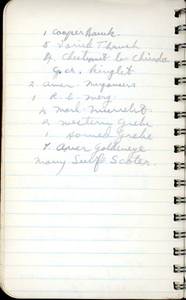 1 Cooper Hawk
5 Varied Thrush
4 Chestnut b. Chickadee
G. cr. Kinglet
2 Amer. Mergansers
1 R. b. Merg
2 Marb. Murrelet
2 Western Grebe
1 Horned Grebe
7 Amer Goldeneye
Many Surf Scoter